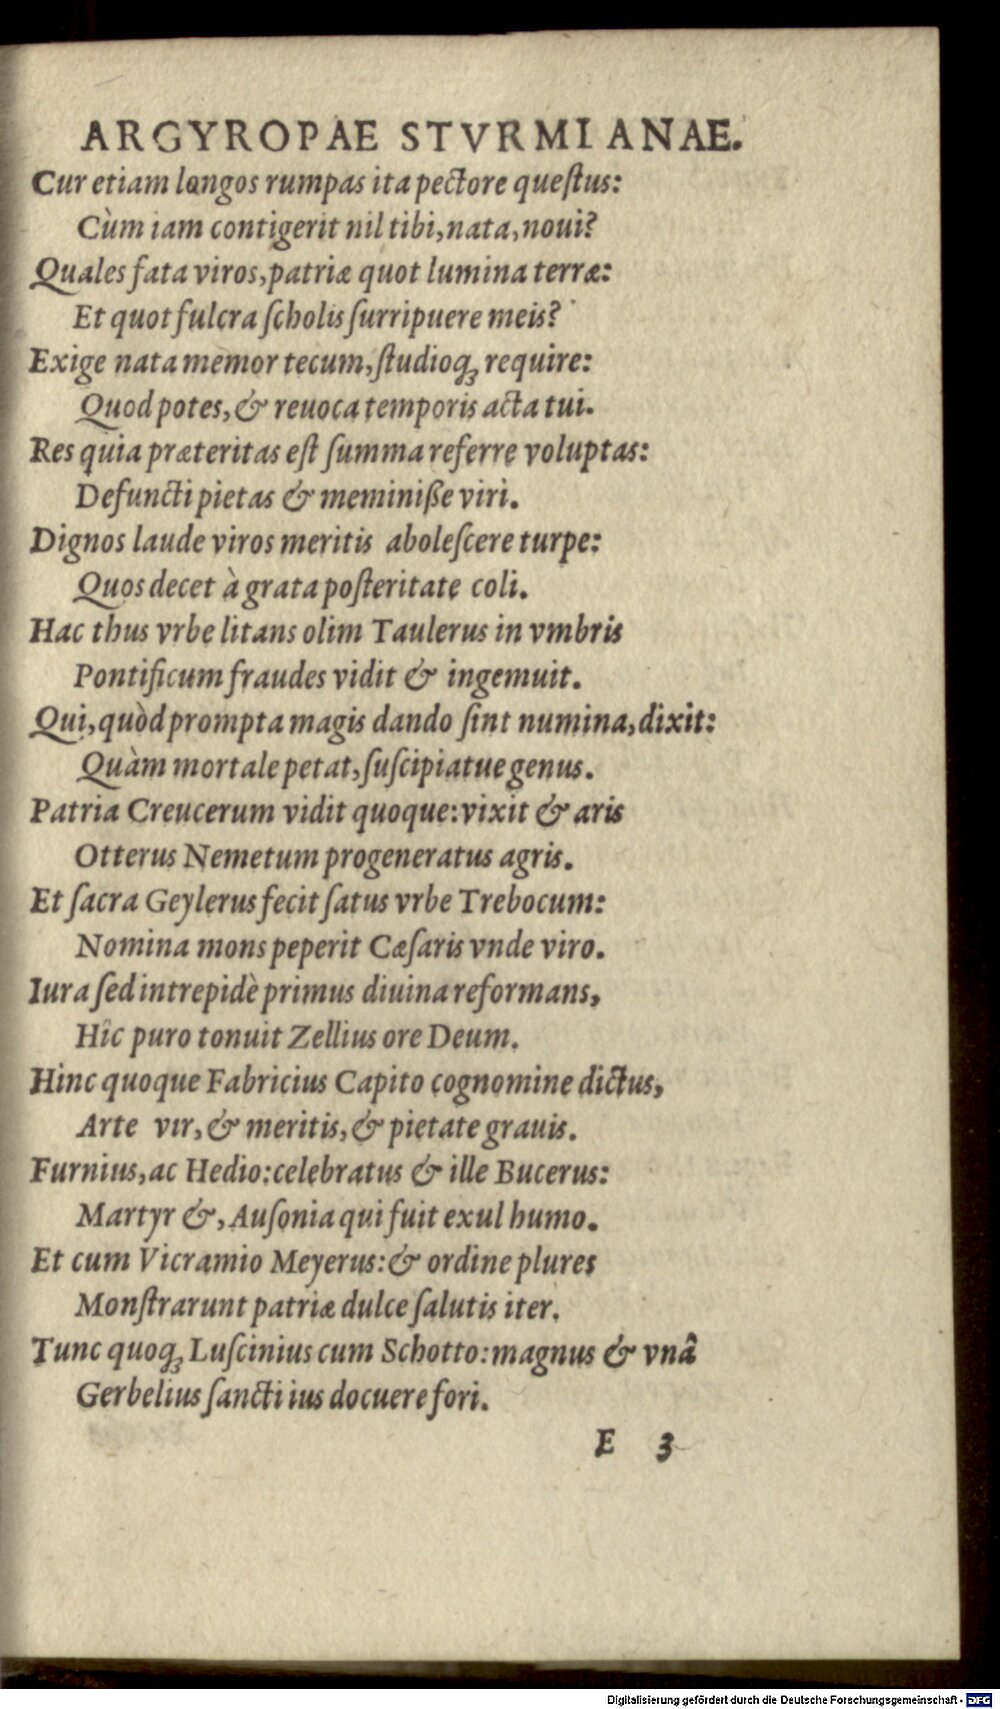 ARGYROPAE STVRMIANAE.
Cur etiam longos rumpas ita pectore queſtus:
Cùm iam contigerit nil tibi, nata, noui?
Quales fata viros, patriæ quot lumina terræ:
Et quot fulcra ſcholis ſurripuere meis?
Exige nata memor tecum, ſtudioqꝫ require:
Quod potes, & reuoca temporis acta tui.
Res quia præteritas eſt ſumma referre voluptas:
Defuncti pietas & meminiße viri.
Dignos laude viros meritis aboleſcere turpe:
Quos decet à grata poſteritate coli.
Hac thus vrbe litans olim Taulerus in vmbris
Pontificum fraudes vidit & ingemuit.
Qui, quòd prompta magis dando ſint numina, dixit:
Quàm mortale petat, ſuſcipiatue genus.
Patria Creucerum vidit quoque: vixit & aris
Otterus Nemetum progeneratus agris.
Et ſacra Geylerus fecit ſatus vrbe Trebocum:
Nomina mons peperit Cæſaris vnde viro.
Iura ſed intrepidè primus diuina reformans,
Hîc puro tonuit Zellius ore Deum.
Hinc quoque Fabricius Capito cognomine dictus,
Arte vir, & meritis, & pietate grauis.
Furnius, ac Hedio: celebratus & ille Bucerus:
Martyr &, Auſonia qui fuit exul humo.
Et cum Vicramio Meyerus: & ordine plures
Monſtrarunt patriæ dulce ſalutis iter.
Tunc quoqꝫ Luſcinius cum Schotto: magnus & vnâ
Gerbelius ſancti ius docuere fori.
E 3
Digitalisierung gefördert durch die Deutsche Forschungsgemeinschaft - DFG